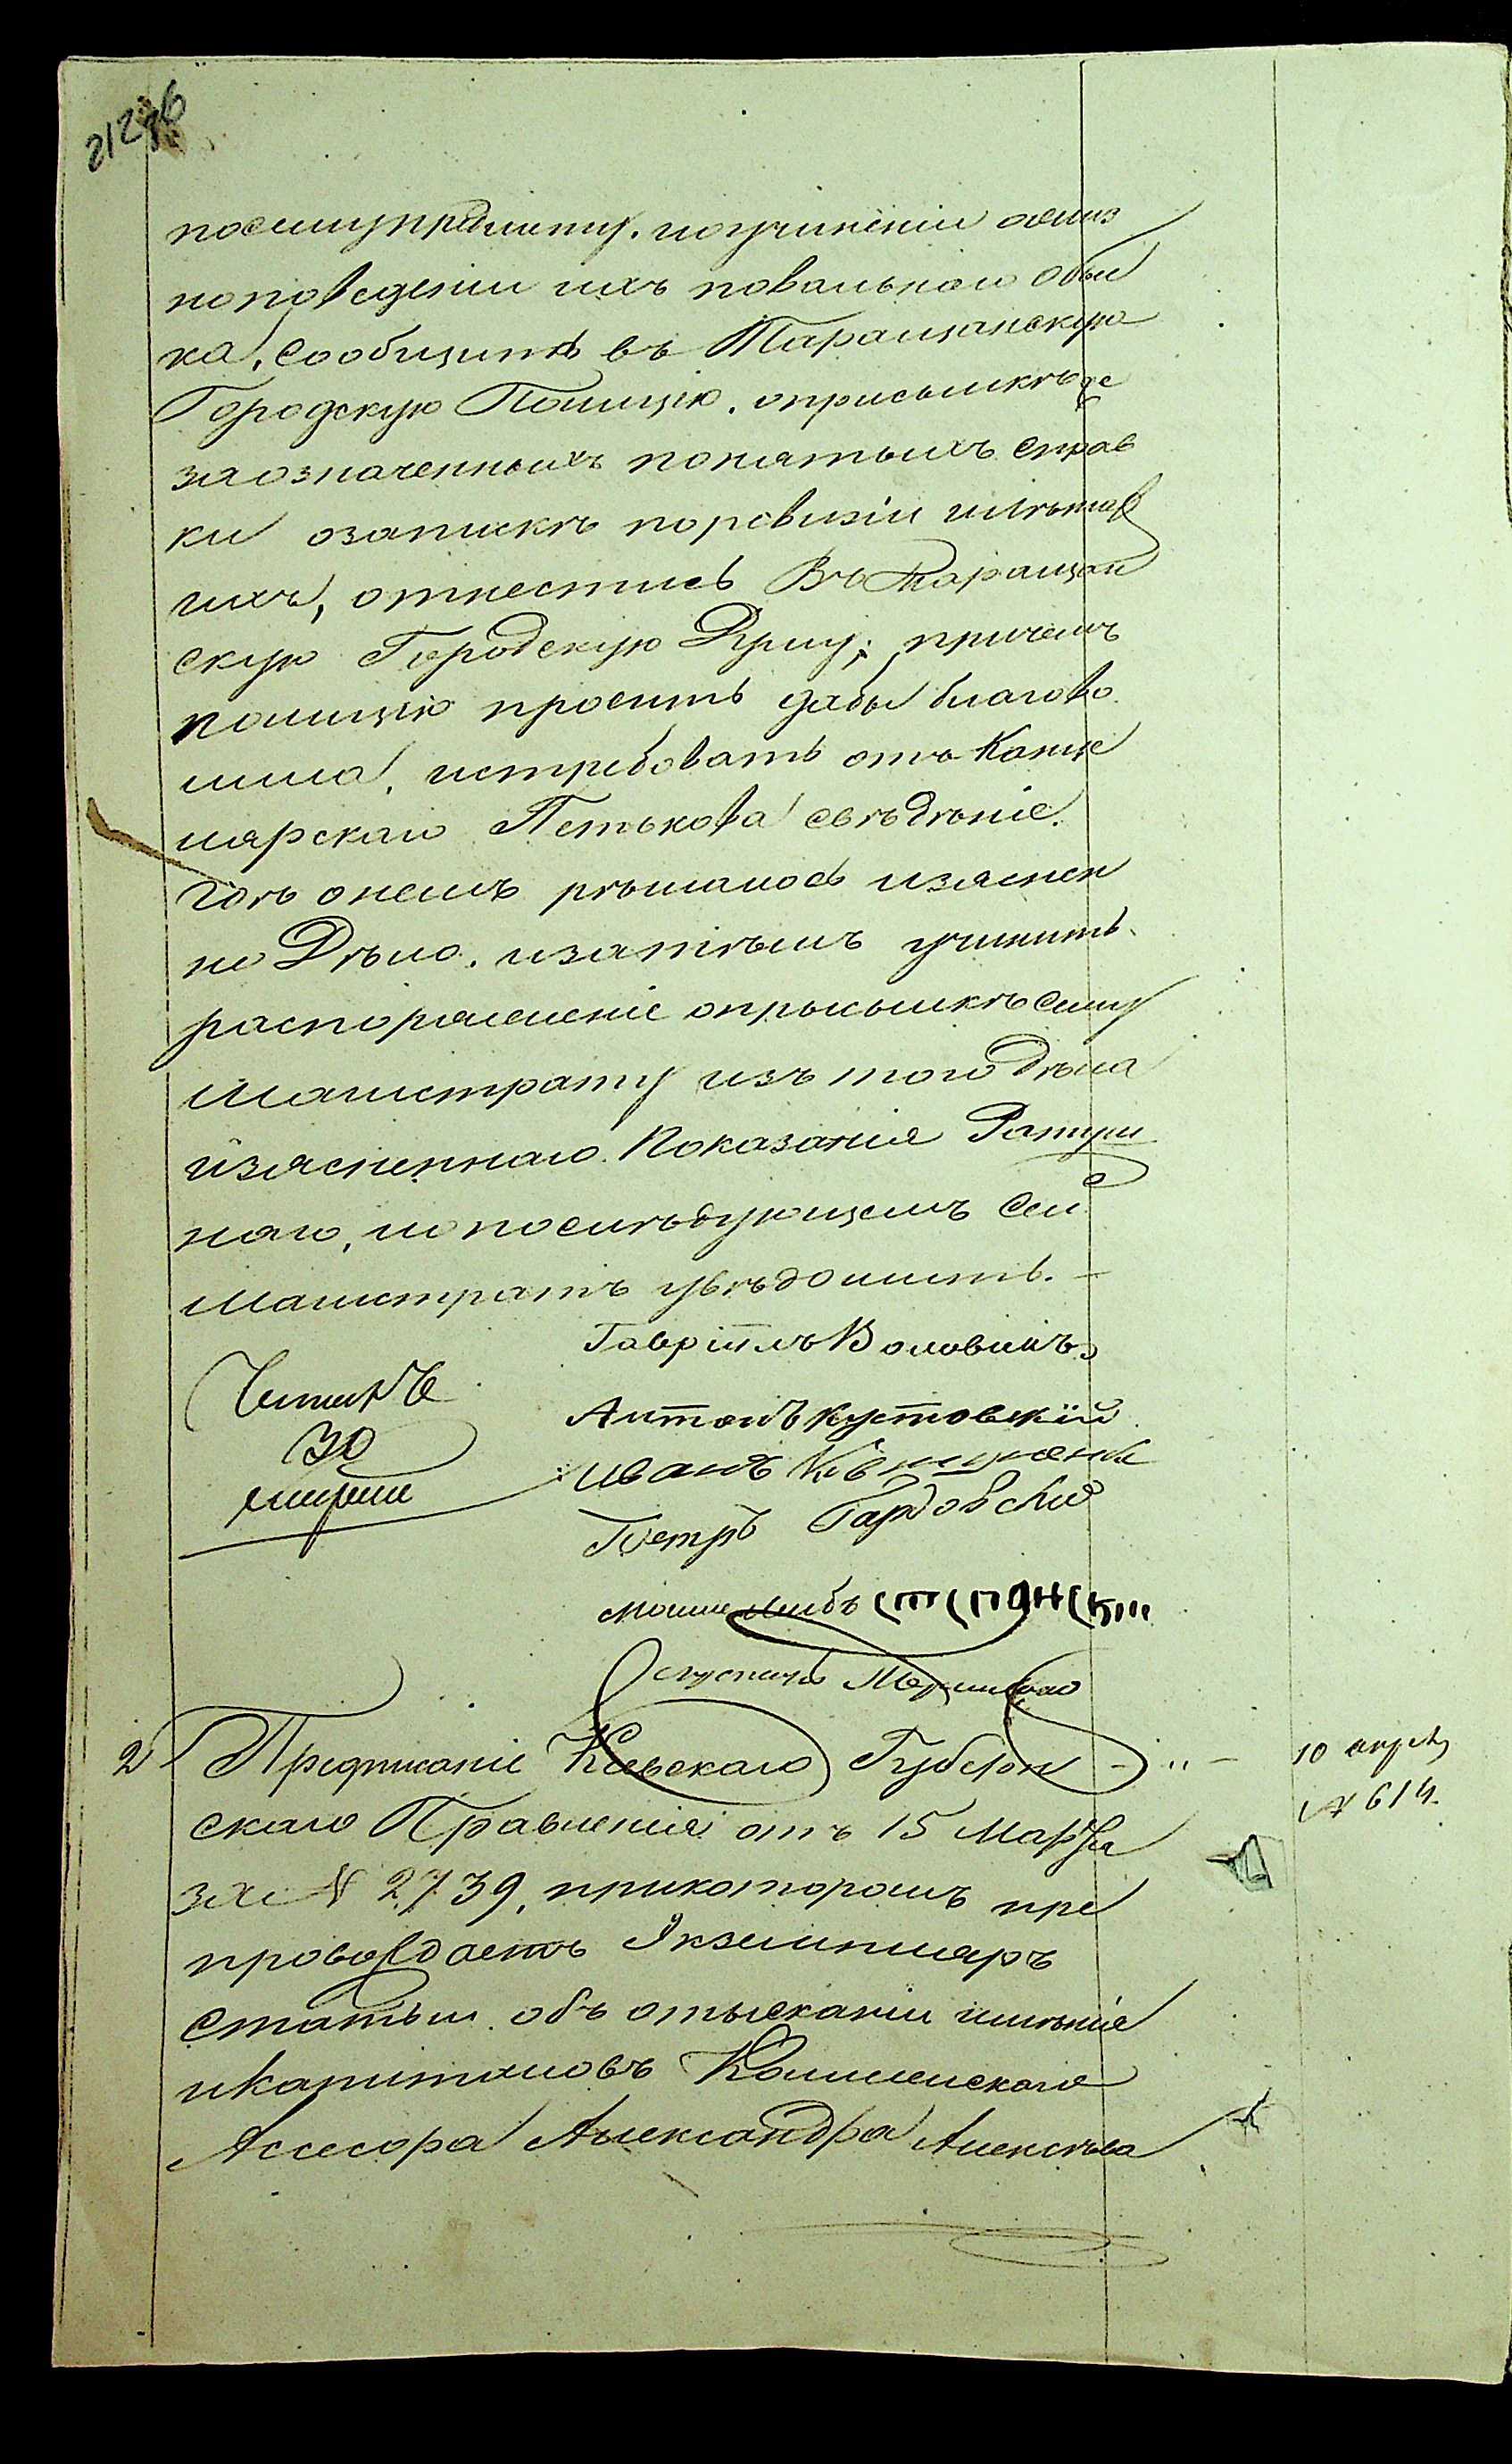 21286
посемупредмету. поучинении
по поведении ихъ повальнаго Обыс
ка, Сообщить въ Таращанскую
Городскую Полицію. оприсылкѣ
заозначенныхъ понятыхъ справ
ки озапискѣ поревизіи илѣтах
ихъ, отнестись Въ Таращан
скую Городскую Думу; причемъ
полицію просить дабы благово
лила, истребовать отъ Канце
лярскаго Петькова свѣдѣніе.
гдѣ онемъ рѣшалось изяснен
но Дѣло. изатѣмъ учинить
распоряженіе опрысылкѣ Сему
Магистрату изъ того Дѣла
изясненнаго Показанія Ратуш
наго, иопослѣдующемъ Сей
Магистратъ увѣдомить. —
Гавріилъ Воловикъ
Читалъ
30
Антонъ Кустовскій
Иванъ
Петръ Гардовскій
Мошко
2 Предписаніе Кіевскаго Губерн
10 апрѣля
№ 614.
скаго Правленія отъ 15 Марта
за № 2739, прикоторомъ пре
провождаетъ Экземпляръ
Статьи объ отысканіи имѣнія
икапиталовъ Коллежскаго
Ассесора Александра Алексѣева